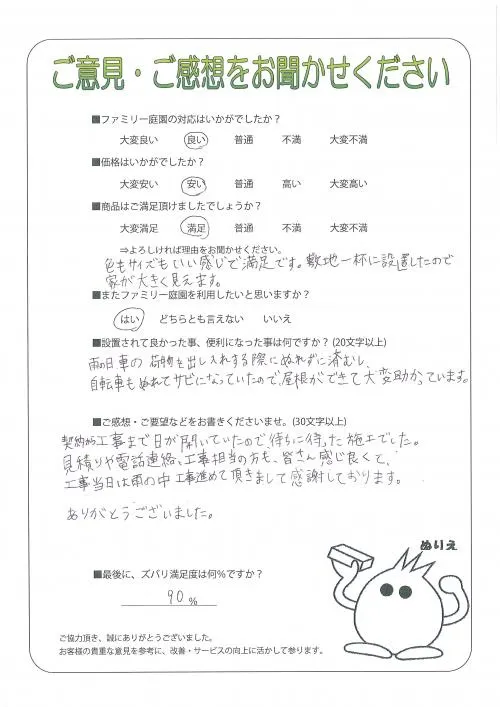 ご意見・ご感想をお聞かせください
■ファミリー庭園の対応はいかがでしたか?
大変良い 良い 普通 不満 大変不満
■価格はいかがでしたか?
大変安い 安い 普通 高い 大変高い
■商品はご満足頂けましたでしょうか?
大変満足 満足 普通 不満 大変不満
⇒よろしければ理由をお聞かせください。
色もサイズもいい感じで満足です。敷地一杯に設置したので
家が大きく見えます。
■またファミリー庭園を利用したいと思いますか?
はい どちらとも言えない いいえ
■設置されて良かった事、便利になった事は何ですか? (20文字以上)
雨の日車の荷物を出し入れする際にぬれずに済むし、
自転車もぬれてサビになっていたので、屋根ができて大変助かっています。
■ご感想・ご要望などをお書きくださいませ。(30文字以上)
契約から工事まで日が開いていたので待ちに待った施工でした。
見積りや電話連絡、工事担当の方も、皆さん感じ良くて、
工事当日は雨の中工事進めて頂きまして感謝しております。
ありがとうございました。
ぬりえ
■最後に、ズバリ満足度は何%ですか?
90 %
ご協力頂き、誠にありがとうございました。
お客様の貴重な意見を参考に、改善・サービスの向上に活かして参ります。